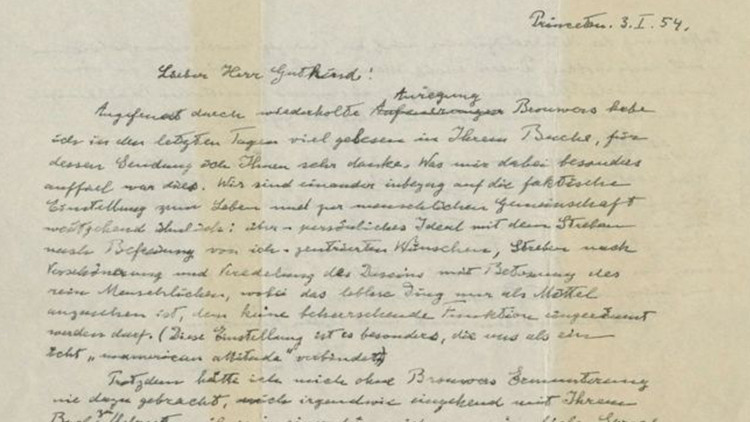 Princeton. 3. I. 54.
Lieber Herr Gutkind!
Anregung
Angefeuert durch wiederholte Brouwers habe
ich in den letzten Tagen viel gelesen in Ihrem Buche, für
dessen Sendung ich Ihnen sehr danke. Was mir dabei besonders
auffiel war dies. Wir sind einander inbezug auf die faktische
Einstellung zum Leben und zur menschlichen Gemeinschaft
weitgehend ähnlich: persönliches Ideal mit dem Streben
nach Befreiung von ich-zentrierten Wünschen, Streben nach
Verschönerung und Veredelung des Daseins mit Betonung des
rein Menschlichen, wobei das leblose Ding nur als Mittel
anzusehen ist, dem keine beherrschende Funktion eingeräumt
werden darf. (Diese Einstellung ist es besonders, die uns als ein
echt „unamerican attitude“ verbindet)
Trotzdem hätte ich mich ohne Brouwers Ermunterung
nie dazu gebracht, mich irgendwie eingehend mit Ihrem